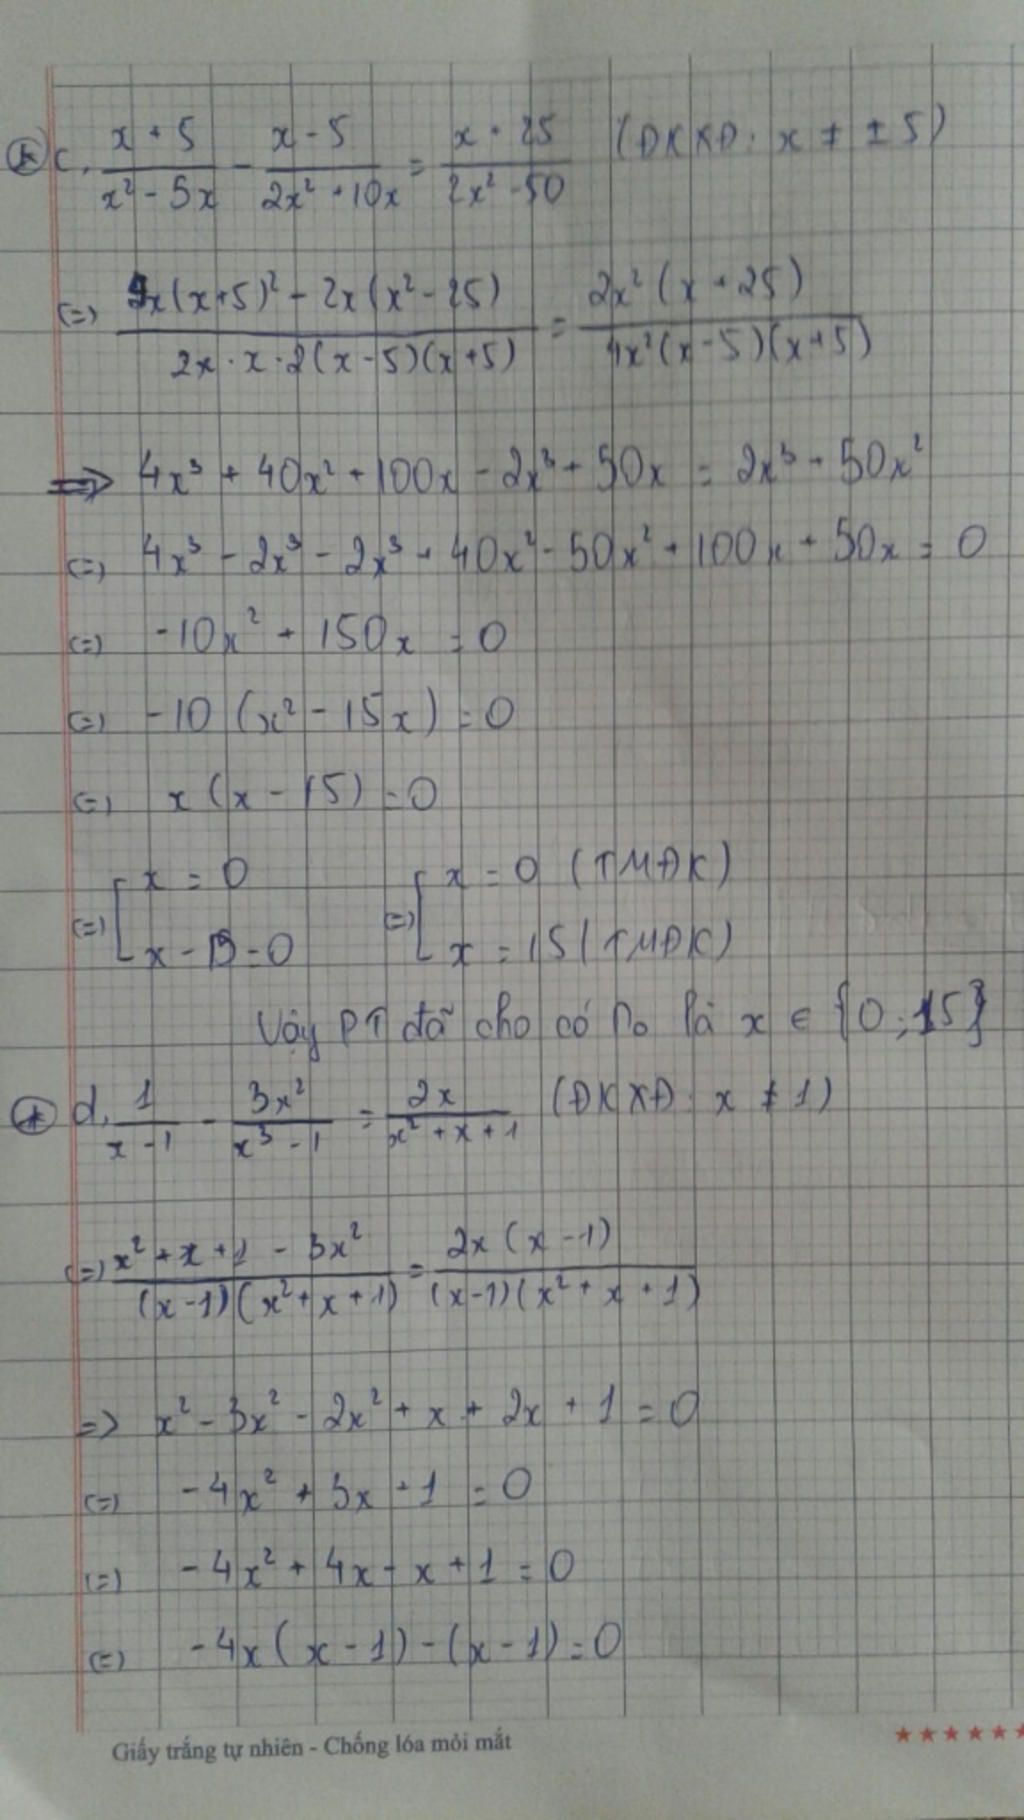 c. (x + 5)/(x² - 5x) - (x - 5)/(2x² + 10x) = (x + 25)/(2x² - 50) (ĐKXĐ: x ≠ ± 5)
(=) (4x(x+5)² - 2x(x² - 25))/(2x · x · 2(x - 5)(x + 5)) = (2x²(x + 25))/(4x²(x - 5)(x + 5))
=> 4x³ + 40x² + 100x - 2x³ + 50x = 2x³ + 50x²
(=) 4x³ - 2x³ - 2x³ + 40x² - 50x² + 100x + 50x = 0
(=) -10x² + 150x = 0
(=) -10 (x² - 15x) = 0
(=) x (x - 15) = 0
(=) [ x = 0 (=) [ x = 0 (TMĐK)
x - 15 = 0 x = 15 (TMĐK)
Vậy PT đã cho có no là x ∈ {0; 15}
d. 1/(x - 1) - 3x²/(x³ - 1) = 2x/(x² + x + 1) (ĐKXĐ: x ≠ 1)
(=) (x² + x + 1 - 3x²)/((x - 1)(x² + x + 1)) = (2x (x - 1))/((x - 1)(x² + x + 1))
=> x² - 3x² - 2x² + x + 2x + 1 = 0
(=) -4x² + 3x + 1 = 0
(=) -4x² + 4x - x + 1 = 0
(=) -4x (x - 1) - (x - 1) = 0
Giấy trắng tự nhiên - Chống lóa mỏi mắt